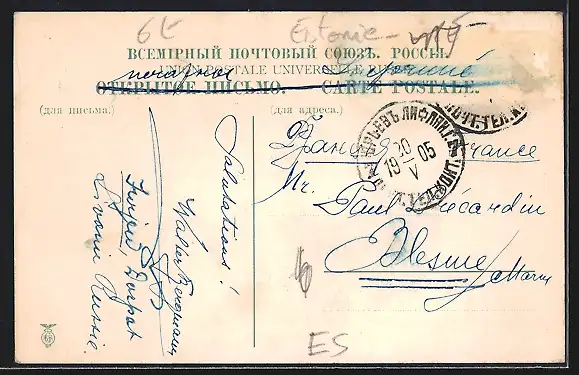 6E
Estonie -
ВСЕМІРНЫЙ ПОЧТОВЫЙ СОЮЗЪ. РОССІЯ.
UNION POSTALE UNIVERSELLE
ОТКРЫТОЕ ПИСЬМО. CARTE POSTALE.
(для письма.)
(для адреса.)
Salutations!
Walter Bergmann
Jurjew, Dorpat
Livonie Russie.
ЮРЬЕВЪ ЛИФЛЯН.Г.
20
19 05
V
ПОЧТ.ТЕЛ.К
Франція France
Mr. Paul Lécardin
Blesme
Marne
ES